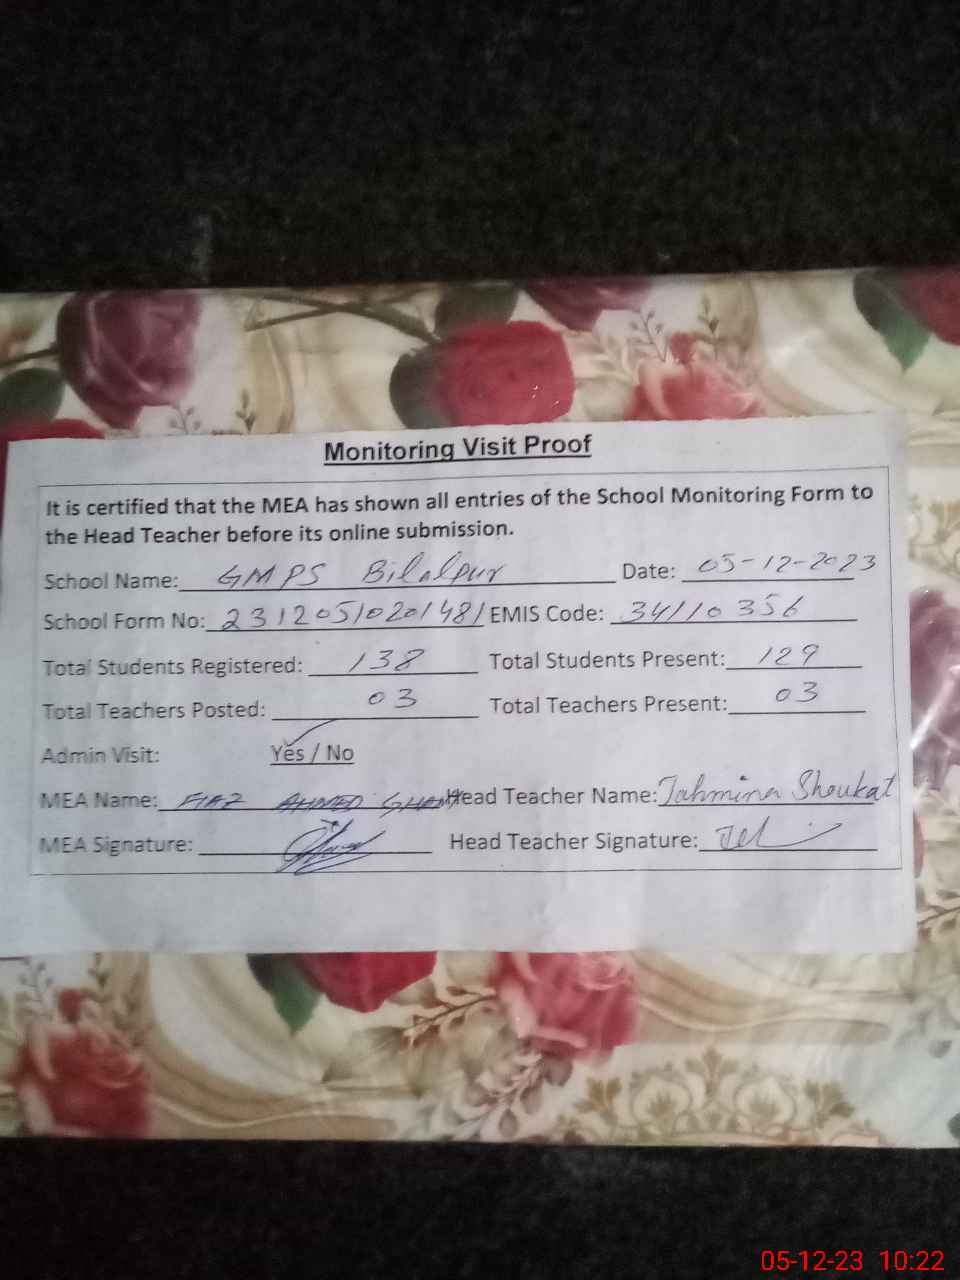 Monitoring Visit Proof
It is certified that the MEA has shown all entries of the School Monitoring Form to
the Head Teacher before its online submission.
School Name: GMPS Bilalpur Date: 05-12-2023
School Form No: 23120510201481 EMIS Code: 34110356
Total Students Registered: 138 Total Students Present: 129
Total Teachers Posted: 03 Total Teachers Present: 03
Admin Visit: Yes / No
MEA Name: FIAZ AHMED Head Teacher Name: Tahmina Shoukat
MEA Signature: Head Teacher Signature:
05-12-23 10:22